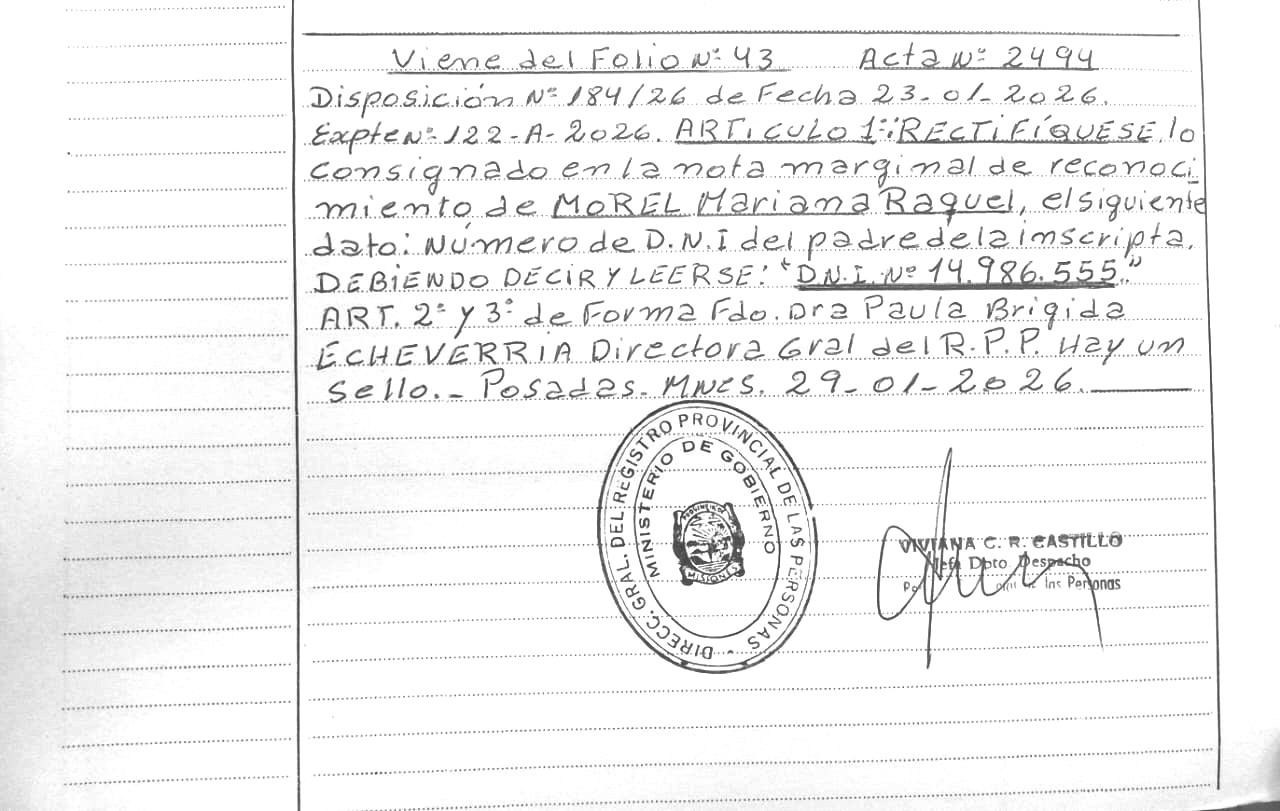 Viene del Folio Nº 43 Acta Nº 2494
Disposición Nº 184/26 de Fecha 23-01-2026.
Expte Nº 122-A-2026. ARTICULO 1º: RECTIFÍQUESE, lo
consignado en la nota marginal de reconoci-
miento de MOREL Mariana Raquel, el siguiente
dato: Número de D.N.I del padre de la inscripta,
DEBIENDO DECIR Y LEERSE: "D.N.I. Nº 14.986.555."
ART. 2º y 3º de Forma Fdo. Dra Paula Brigida
ECHEVERRIA Directora Gral del R.P.P. Hay un
sello.- Posadas. Mnes. 29-01-2026.
DIRECC. GRAL. DEL REGISTRO PROVINCIAL DE LAS PERSONAS -
MINISTERIO DE GOBIERNO
MISIONES
VIVIANA C. R. CASTILLO
Jefa Dpto Despacho
las Personas